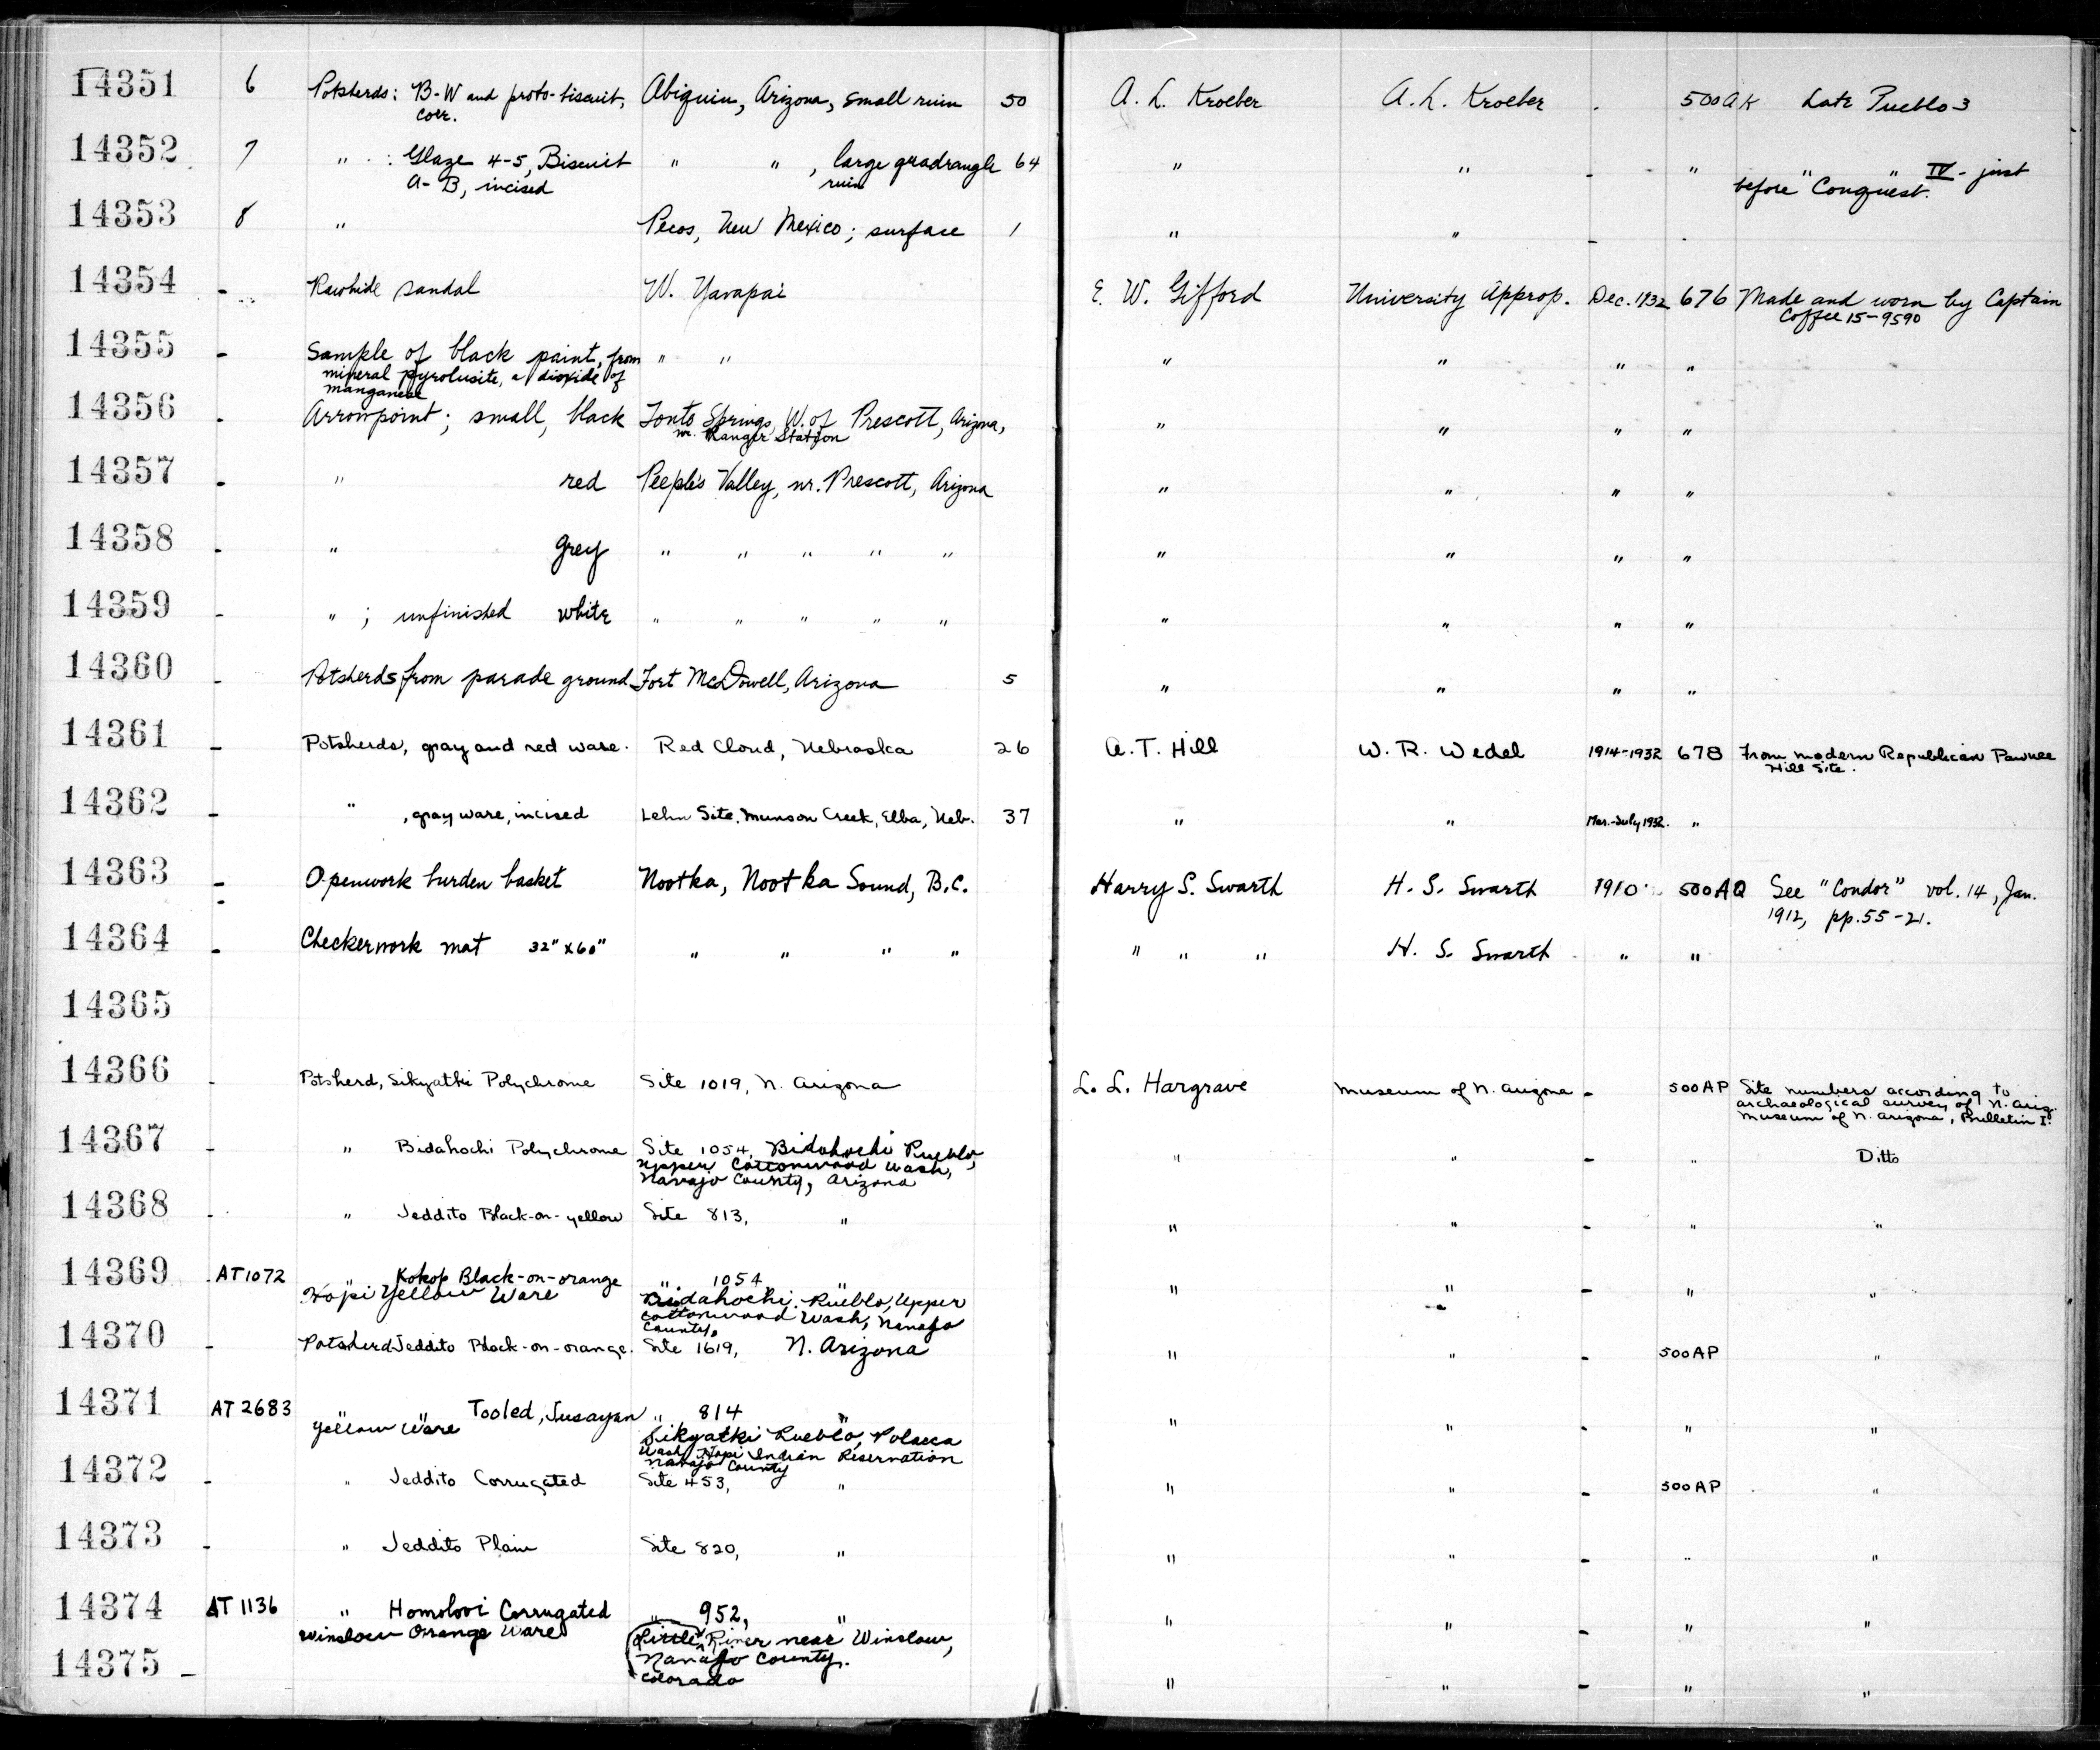 14351 6 Potsherds: B-W and proto-biscuit, Abiquiu, Arizona, small ruin 50 A. L. Kroeber A. L. Kroeber . 500AK Late Pueblo 3
corr.
14352 7 " : Glaze 4-5, Biscuit " " , large quadrangle 64 " " - " " IV - just
A-B, incised ruin before Conquest.
14353 8 " Pecos, New Mexico; surface 1 " " - .
14354 - Rawhide sandal W. Yavapai E. W. Gifford University Approp. Dec. 1932 676 Made and worn by Captain
Coffee 15-9590
14355 - Sample of black paint, from " " " " " "
mineral pyrolusite, a dioxide of
manganese
14356 . Arrowpoint; small, black Tonto Springs, W. of Prescott, Arizona, " " " "
nr. Ranger Station
14357 - " red Peeple's Valley, nr. Prescott, Arizona " " " "
14358 - " grey " " " " " " " " "
14359 - " ; unfinished white " " " " " " " " "
14360 Potsherds from parade ground Fort McDowell, Arizona 5 " " " "
14361 - Potsherds, gray and red ware. Red Cloud, Nebraska 26 A. T. Hill W. R. Wedel 1914-1932 678 From modern Republican Pawnee
Hill Site.
14362 - " , gray ware, incised Lehn Site, Munson Creek, Elba, Neb. 37 " " Mar.-July 1932. "
14363 - Openwork burden basket Nootka, Nootka Sound, B.C. Harry S. Swarth H. S. Swarth 1910 500AQ See "Condor" vol. 14, Jan.
1912, pp. 55-21.
14364 - Checkerwork mat 32" x 60" " " " " " " " H. S. Swarth " "
14365
14366 - Potsherd, Sikyatki Polychrome Site 1019, N. Arizona L. L. Hargrave Museum of N. Arizona - 500AP Site numbers according to
archaeological survey of N. Ariz.
Museum of N. Arizona, Bulletin I.
14367 - " Bidahochi Polychrome Site 1054, Bidahochi Pueblo, " " - " Ditto
Upper Cottonwood Wash,
Navajo County, Arizona
14368 - " Jeddito Black-on-yellow Site 813, " " " - " "
14369 AT1072 " Kokop Black-on-orange " 1054 " " " - " "
Hopi Yellow Ware Bidahochi Pueblo, Upper
Cottonwood Wash, Navajo
County,
14370 - Potsherd Jeddito Black-on-orange. Site 1619, N. Arizona " " - 500AP "
14371 AT 2683 " " Tooled, Jusayan " 814 " " " - " "
Yellow Ware Sikyatki Pueblo, Polacca
Wash, Hopi Indian Reservation
Navajo County
14372 - " Jeddito Corrugated Site 453, " " " - 500AP "
14373 - " Jeddito Plain Site 820, " " " - " "
14374 AT 1136 " Homolovi Corrugated " 952, " " " - " "
Winslow Orange Ware Little River near Winslow,
Navajo County.
Colorado
14375 - " " - " "